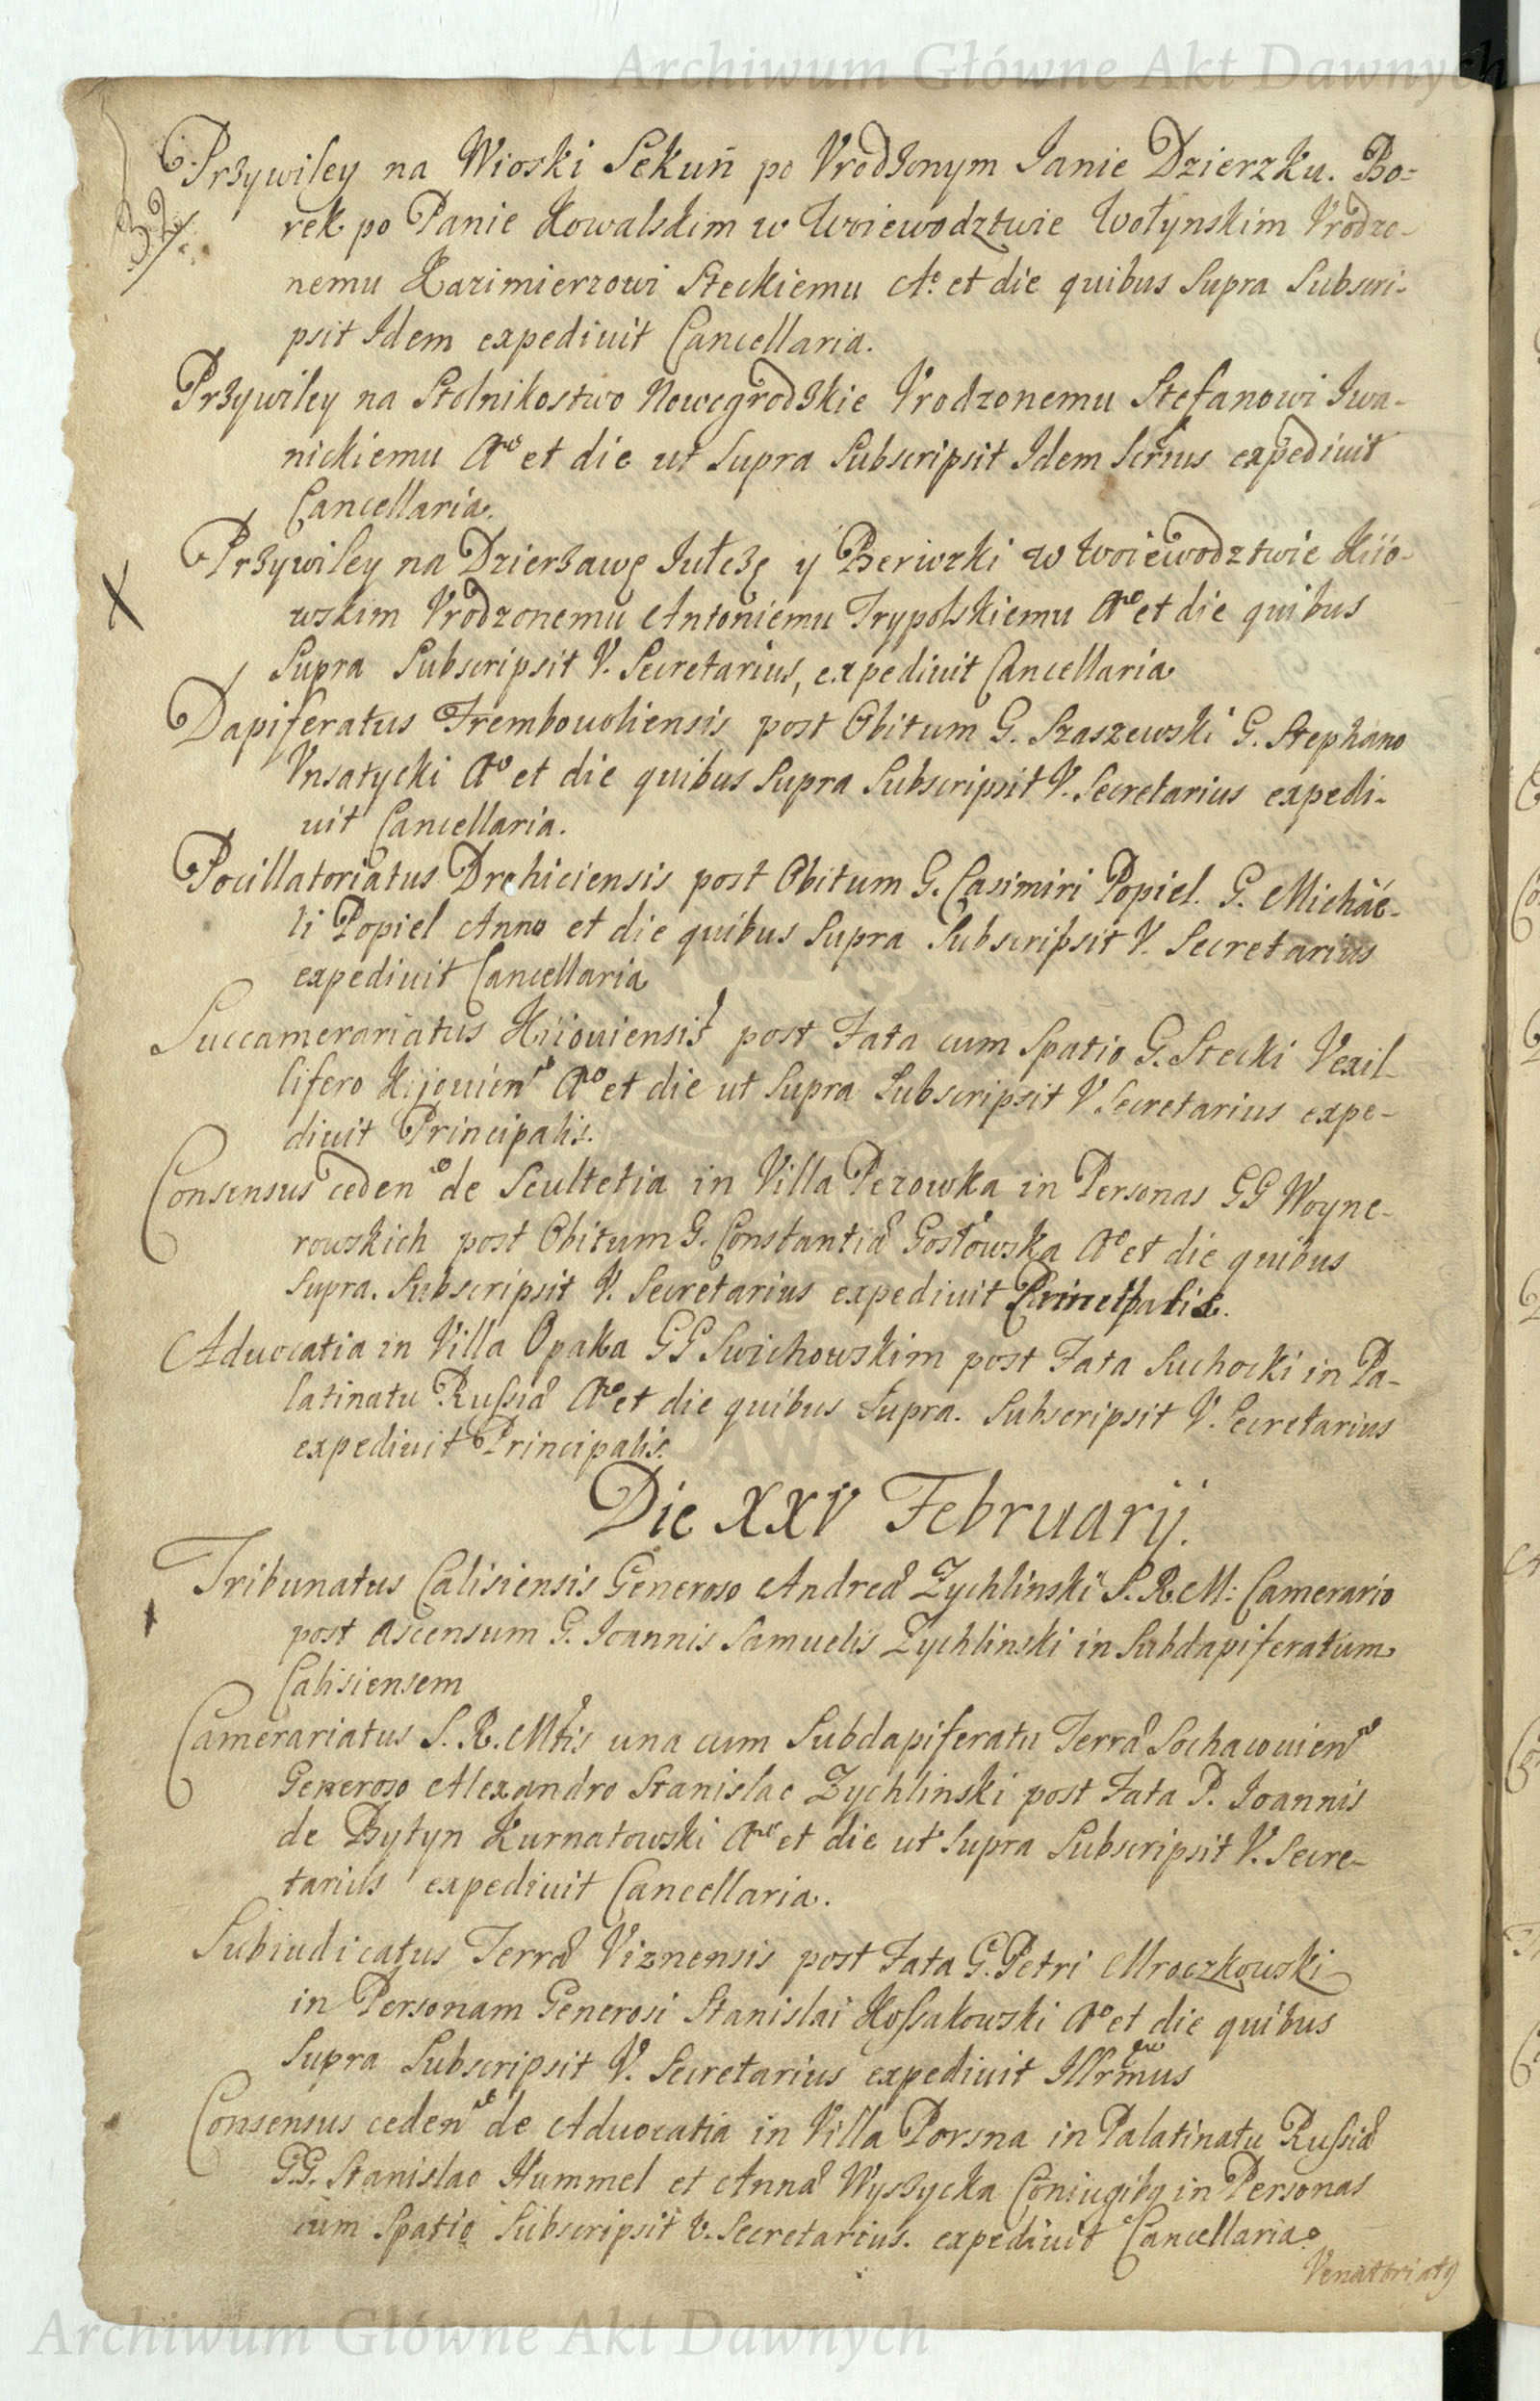 Archiwum Główne Akt Dawnych
32
Przywiley na Wioski Sekuń po Vrodzonym Janie Dzierzku. Bo=
rek po Panie Kowalskim w Woiewodztwie Wołynskim Vrodzo-
nemu Kazimierzowi Steckiemu Ao et die quibus Supra Subscri-
psit Idem expediuit Cancellaria.
Przywiley na Stolnikostwo Nowogrodzkie Vrodzonemu Stefanowi Iwa-
nickiemu Ao et die ut Supra Subscripsit Idem Scrius expediuit
Cancellaria.
X
Przywiley na Dzierzawę Jułczę y Beriozki w Woiewodztwie Kiio-
wskim Vrodzonemu Antoniemu Trypolskiemu Ao et die quibus
Supra Subscripsit V. Secretarius, expediuit Cancellaria
Dapiferatus Trembowoliensis post Obitum G. Szaszewski G. Stephano
Vnsatycki Ao et die quibus Supra Subscripsit V. Secretarius expedi-
uit Cancellaria.
Pocillatoriatus Drohiciensis post Obitum G. Casimiri Popiel. G. Michaë-
li Popiel Anno et die quibus Supra Subscripsit V. Secretarius
expediuit Cancellaria
Succamerariatus Kiiouiensis post Fata cum Spatio G. Stecki Vexil-
lifero Kijouien Ao et die ut Supra Subscripsit V Secretarius expe-
diuit Principalis.
Consensus ceden de Scultetia in Villa Perowka in Personas GG Woyne-
rowskich post Obitum G. Constantiæ Gosłowska Ao et die quibus
Supra. Subscripsit V. Secretarius expediuit Principalis.
Aduocatia in Villa Opaka GG Swichowskim post Fata Suchocki in Pa-
latinatu Russiæ Ao et die quibus Supra. Subscripsit V. Secretarius
expediuit Principalis.
Die XXV Februarij.
Tribunatus Calisiensis Generoso Andreæ Zychlinski S. R. M: Camerario
post ascensum G. Joannis Samuelis Zychlinski in Subdapiferatum
Calisiensem
Camerariatus S. R. Mtis una cum Subdapiferatu Terræ Sochacouien
Generoso Alexandro Stanislao Zychlinski post Fata P. Joannis
de Bytyn Kurnatowski Ao et die ut Supra Subscripsit V. Secre-
tarius expediuit Cancellaria.
Subiudicatus Terræ Viznensis post Fata G. Petri Mroczkowski
in Personam Generosi Stanislai Kossakowski Ao et die quibus
Supra Subscripsit V. Secretarius expediuit Illrmus
Consensus ceden de Aduocatia in Villa Porsna in Palatinatu Russiæ
GG. Stanislao Hummel et Annæ Wyszycka Coniugibq in Personas
cum Spatio Subscripsit V. Secretarius. expediuit Cancellaria.
Venatoriatq
Archiwum Główne Akt Dawnych